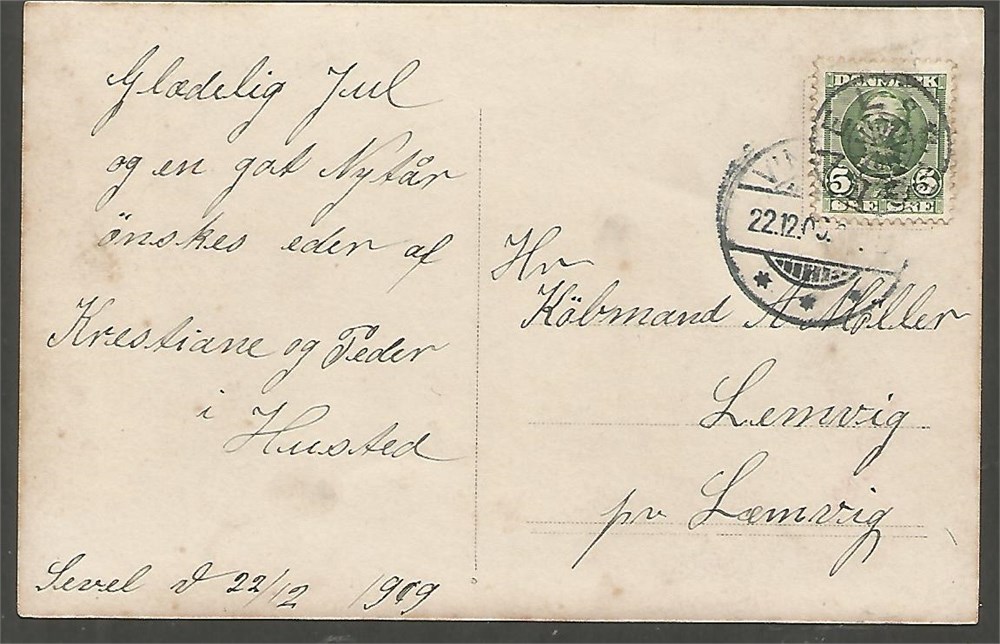 Glædelig Jul
og en got Nytår
ønskes eder af
Krestiane og Peder
i Husted
Sevel d 22/12 1909
DANMARK
5 5
ØRE ØRE
22.12.09.
Hr
Købmand A Møller
Lemvig
pr Læmvig